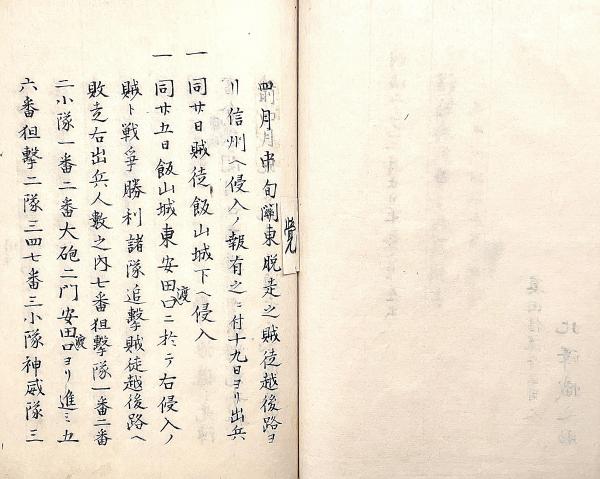 覚
四月中旬関東脱走之賊徒越後路ヨ
リ信州ヘ侵入ノ報有之ニ付十九日ヨリ出兵
一 同廿日賊徒飯山城下ヘ侵入
一 同廿五日飯山城東安田渡口ニ於テ右侵入ノ
賊ト戦争勝利諸隊追撃賊徒越後路ヘ
敗走右出兵人数之内七番狙撃隊一番二番
二小隊一番二番大砲二門安田渡口ヨリ進ミ五
六番狙撃二隊三四七番三小隊神威隊三